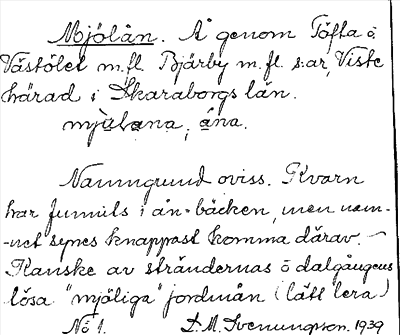 Mjölån. Å genom Töfta ö
Västölet m.fl. Bjärby m.fl. s:ar, Viste
härad i Skaraborgs län.
mjölana, ána.
Namngrund oviss. Kvarn
har funnits i ån-bäcken, men nam-
-net synes knappast komma därav. –
Kanske av strändernas o dalgångens
lösa "mjöliga" jordmån (lätt lera)
No 1. D. M. Svenungson. 1939